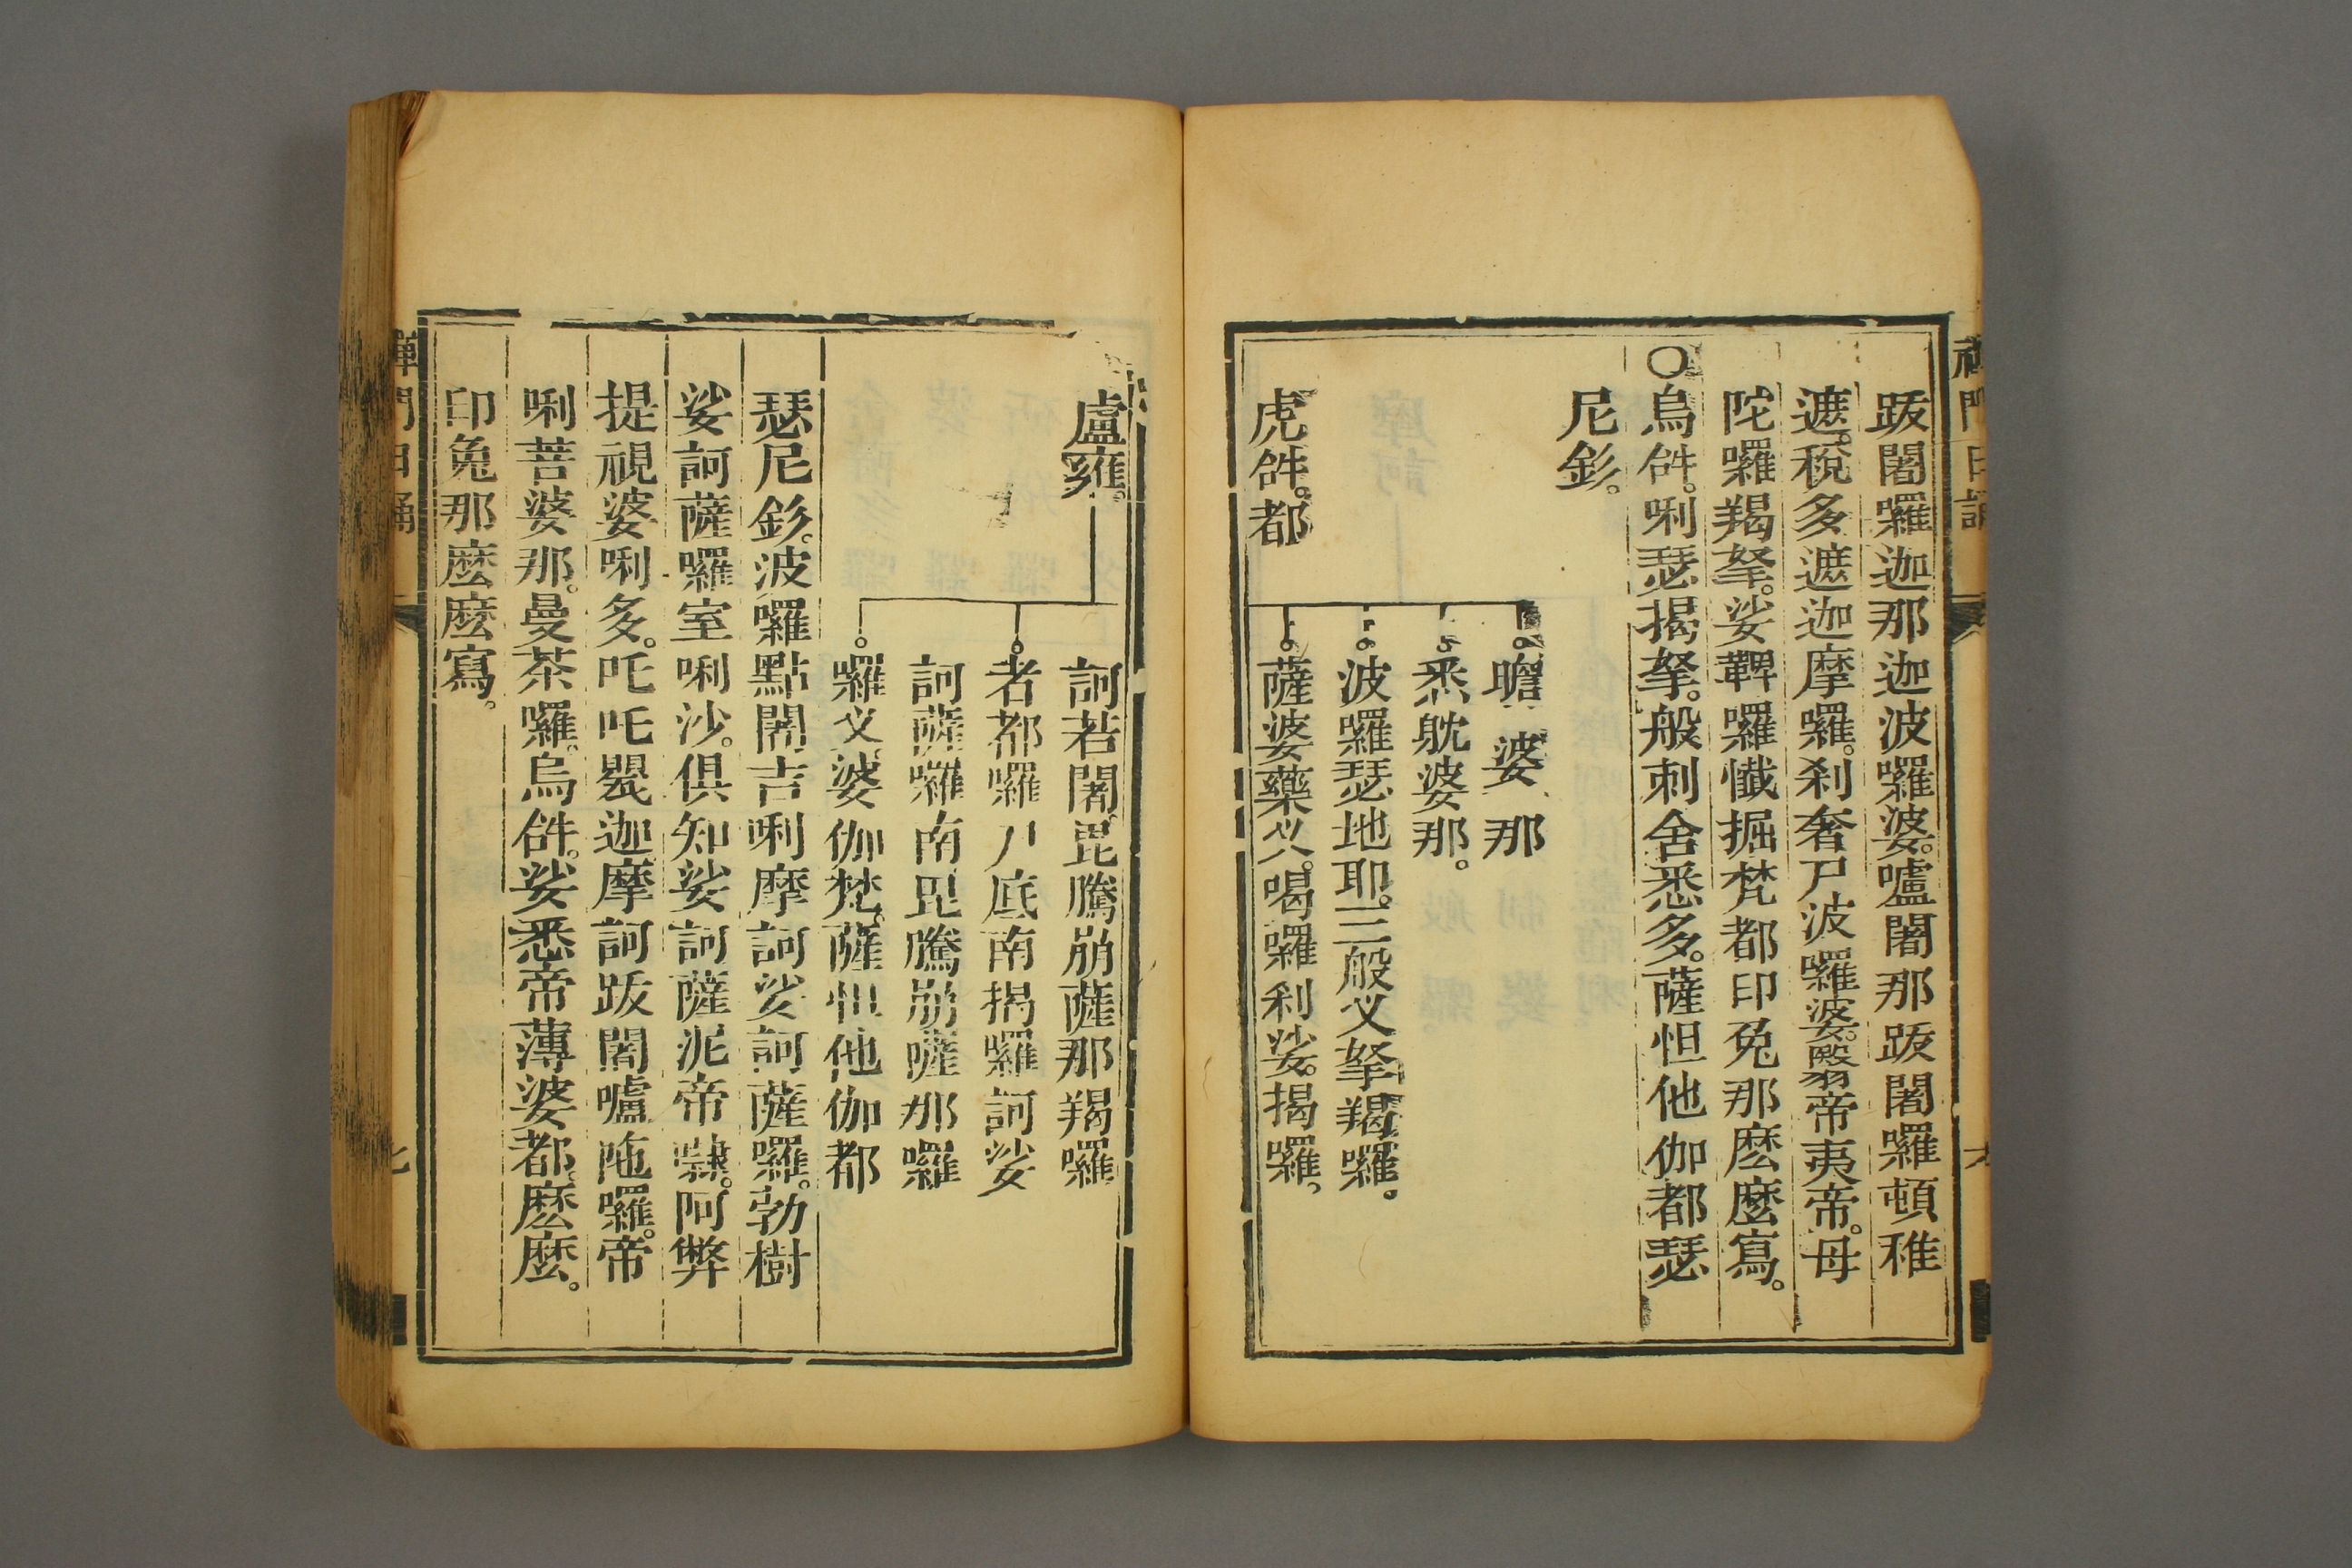 禪門日誦
跋闍囉迦那迦波囉婆。嚧闍那跋闍囉頓稚
遮。稅多遮迦摩囉。剎奢尸波囉婆。翳帝夷帝。母
陀囉羯拏。娑鞞囉懺掘梵都印兔那麽麽寫。
〇烏𤙖。唎瑟揭拏。般刺舍悉多。薩怛他伽都瑟
尼釤。
虎𤙖。都
瞻婆那
悉躭婆那。
波囉瑟地耶。三般叉拏羯囉。
薩婆藥叉。喝囉利娑。揭囉。
盧雍。
訶若闍。毘騰崩薩那羯囉
者都囉尸底南揭囉訶娑
訶薩囉南毘騰崩薩那囉
囉叉婆伽梵。薩怛他伽都
瑟尼釤。波囉點闍吉唎摩訶娑訶薩囉。勃樹
娑訶薩囉室唎沙。俱知娑訶薩泥帝㘑。阿弊
提視婆唎多。吒吒甖迦摩訶跋闍嚧陁囉。帝
唎菩婆那。曼茶囉。烏𤙖。娑悉帝薄婆都。麽麽。
印兔那麽麽寫。
禪門日誦
七